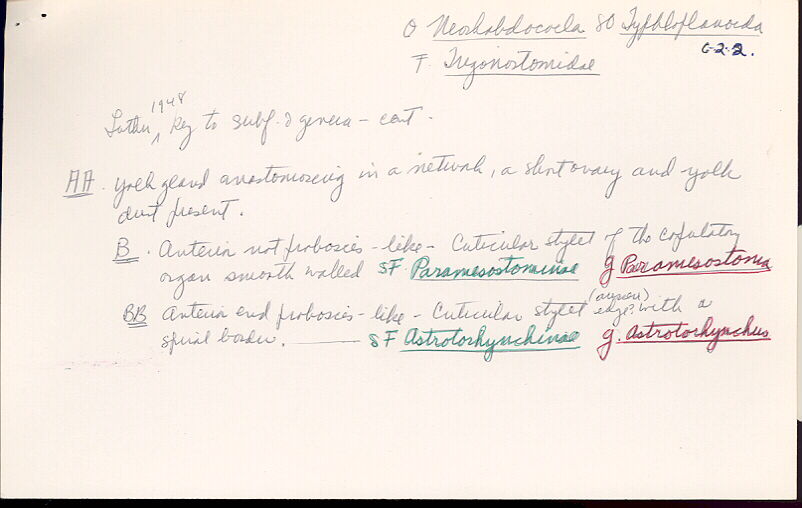 O Neorhabdocoela SO Typhloplanoida
C-2-2.
F. Trigonostomidae
Luther, 1948 Key to subf. & genera - cont.
AA. Yolk gland anastomosing in a network, a short ovary and yolk
duct present.
B. Anterior not proboscis-like - Cuticular stylet of the copulatory
organ smooth walled SF Paramesostominae g Paramesostoma
BB Anterior end proboscis-like - Cuticular stylet edge? with a
spiral border. SF Astrotorhynchinae g. Astrotorhynchus